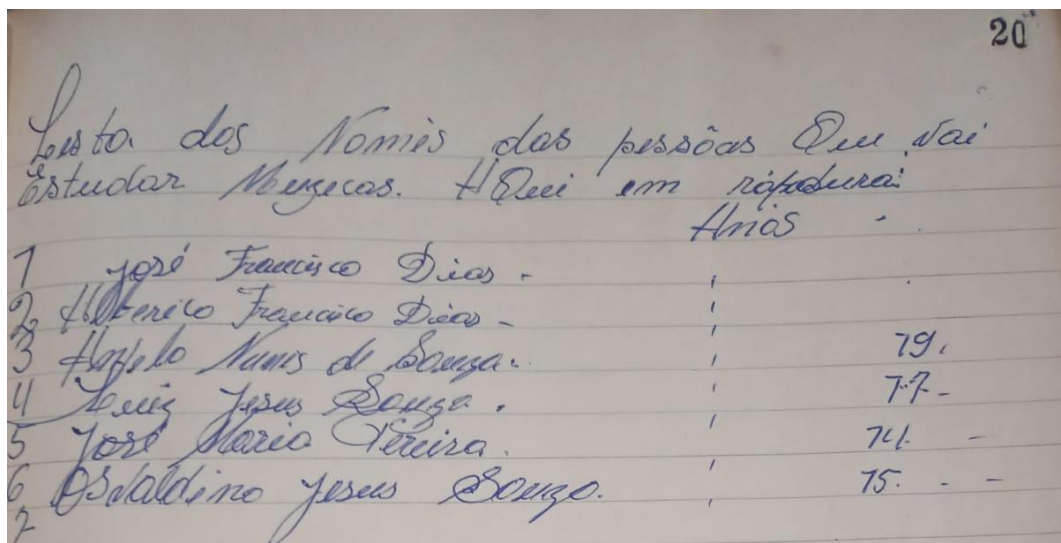 20
Lista dos Nomes das pessôas Que Vai
Estudar Muzecas. AQui em rapadura:
Anos
1 José Francisco Dias -
2 Francisco Dias -
3 Angelo Nunes de Souza. 19.
4 Luiz Jesus Souza. 17-
5 José Maria Pereira. 14. -
6 OSvaldino Jesus Souza. 15. - -
7